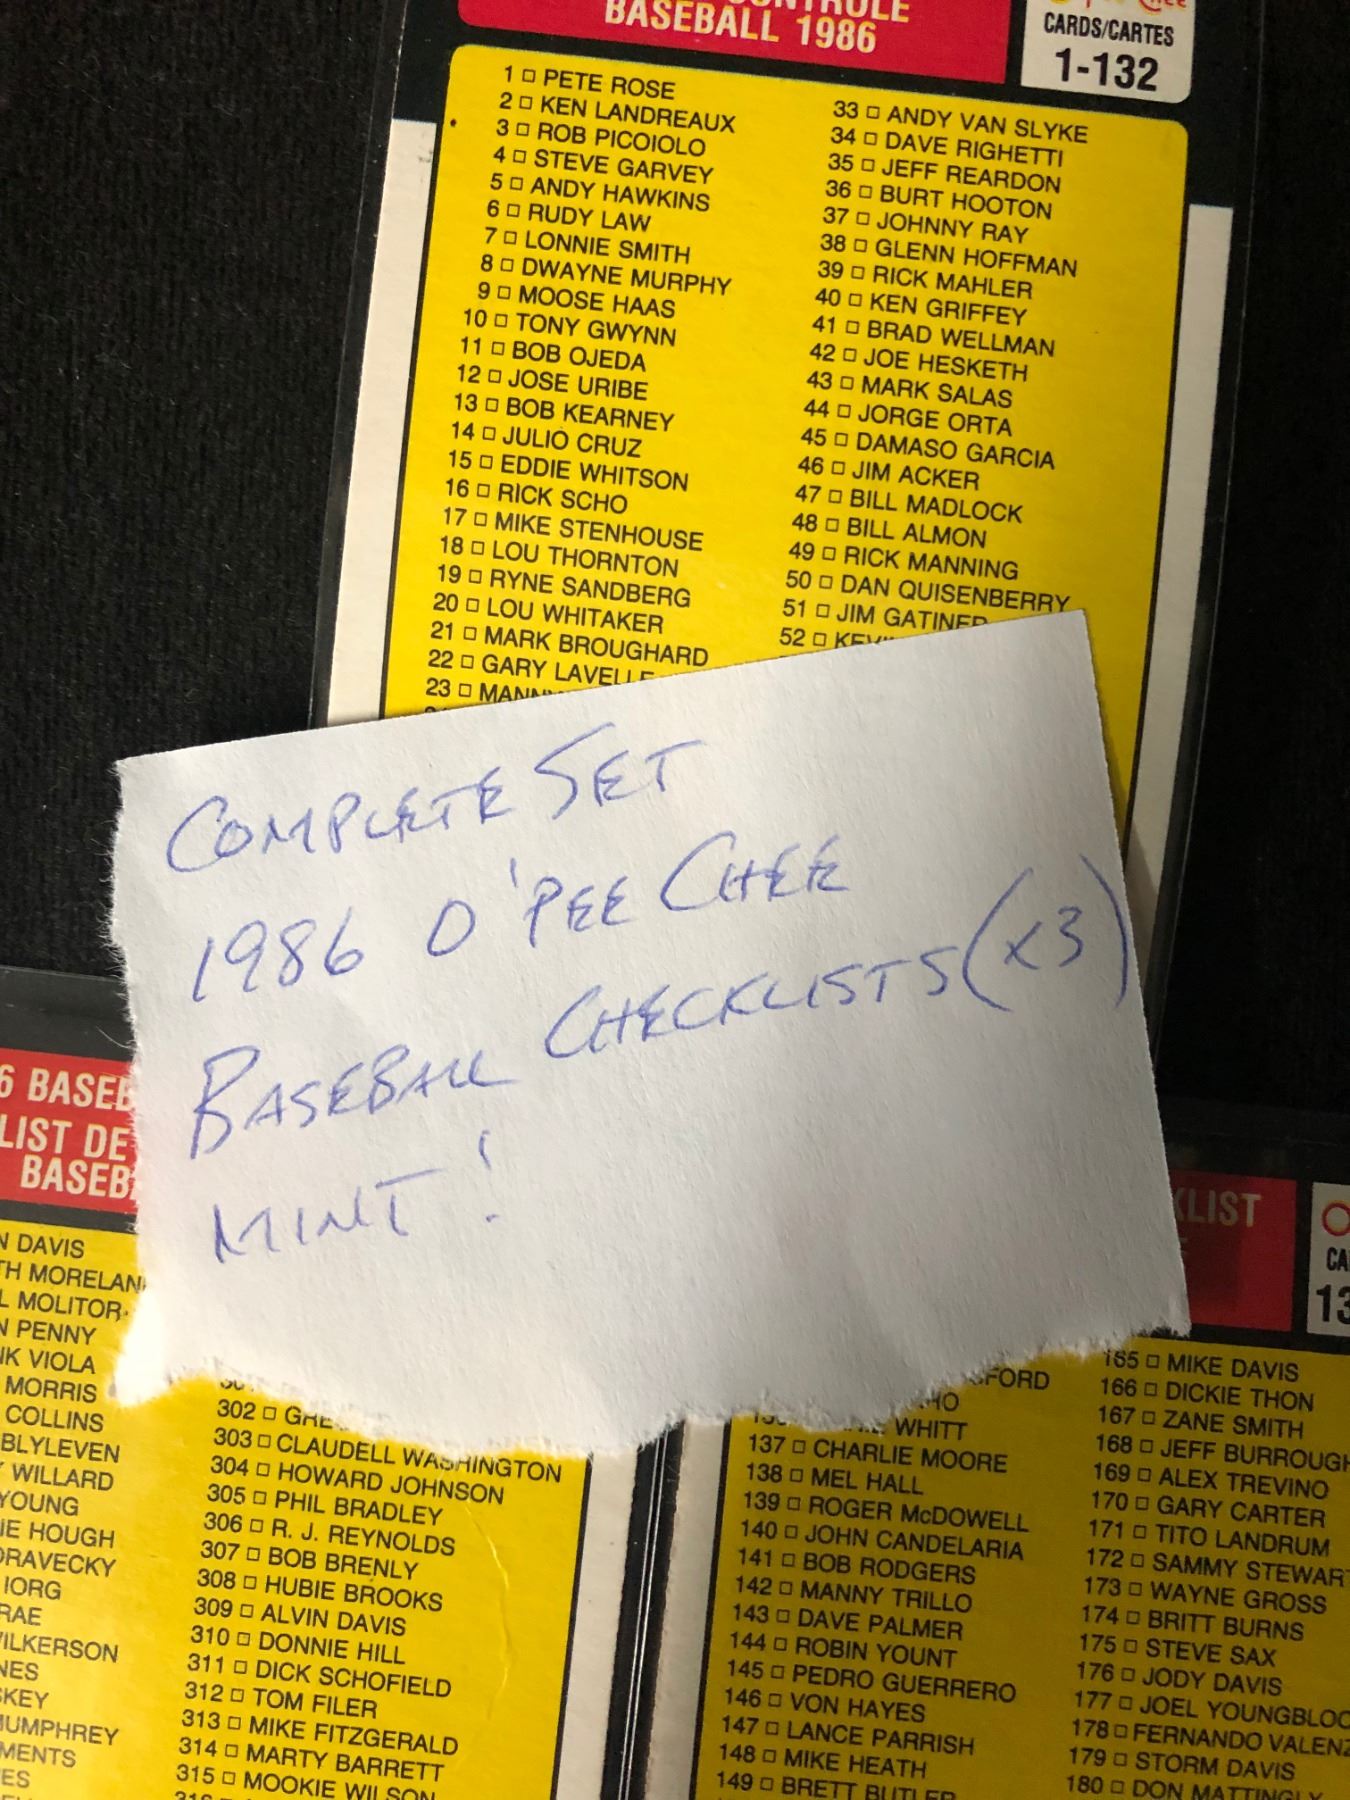 BASEBALL 1986
CARDS/CARTES
1-132
1 □ PETE ROSE
2 □ KEN LANDREAUX
3 □ ROB PICOIOLO
4 □ STEVE GARVEY
5 □ ANDY HAWKINS
6 □ RUDY LAW
7 □ LONNIE SMITH
8 □ DWAYNE MURPHY
9 □ MOOSE HAAS
10 □ TONY GWYNN
11 □ BOB OJEDA
12 □ JOSE URIBE
13 □ BOB KEARNEY
14 □ JULIO CRUZ
15 □ EDDIE WHITSON
16 □ RICK SCHO
17 □ MIKE STENHOUSE
18 □ LOU THORNTON
19 □ RYNE SANDBERG
20 □ LOU WHITAKER
21 □ MARK BROUGHARD
22 □ GARY LAVELLE
23 □
33 □ ANDY VAN SLYKE
34 □ DAVE RIGHETTI
35 □ JEFF REARDON
36 □ BURT HOOTON
37 □ JOHNNY RAY
38 □ GLENN HOFFMAN
39 □ RICK MAHLER
40 □ KEN GRIFFEY
41 □ BRAD WELLMAN
42 □ JOE HESKETH
43 □ MARK SALAS
44 □ JORGE ORTA
45 □ DAMASO GARCIA
46 □ JIM ACKER
47 □ BILL MADLOCK
48 □ BILL ALMON
49 □ RICK MANNING
50 □ DAN QUISENBERRY
51 □ JIM
52 □
COMPLETE SET
1986 O'PEE CHEE
BASEBALL CHECKLISTS (X3)
MINT!
6 BASEB
LIST DE
BASEB
N DAVIS
TH MORELAN
L MOLITOR
N PENNY
NK VIOLA
MORRIS
COLLINS
BLYLEVEN
WILLARD
YOUNG
IE HOUGH
DRAVECKY
IORG
RAE
WILKERSON
NES
SKEY
HUMPHREY
MENTS
ES
302 □
303 □ CLAUDELL WASHINGTON
304 □ HOWARD JOHNSON
305 □ PHIL BRADLEY
306 □ R. J. REYNOLDS
307 □ BOB BRENLY
308 □ HUBIE BROOKS
309 □ ALVIN DAVIS
310 □ DONNIE HILL
311 □ DICK SCHOFIELD
312 □ TOM FILER
313 □ MIKE FITZGERALD
314 □ MARTY BARRETT
315 □ MOOKIE WILSON
KLIST
CA
13
SFORD
WHITT
137 □ CHARLIE MOORE
138 □ MEL HALL
139 □ ROGER McDOWELL
140 □ JOHN CANDELARIA
141 □ BOB RODGERS
142 □ MANNY TRILLO
143 □ DAVE PALMER
144 □ ROBIN YOUNT
145 □ PEDRO GUERRERO
146 □ VON HAYES
147 □ LANCE PARRISH
148 □ MIKE HEATH
149 □ BRETT BUTLER
165 □ MIKE DAVIS
166 □ DICKIE THON
167 □ ZANE SMITH
168 □ JEFF BURROUGH
169 □ ALEX TREVINO
170 □ GARY CARTER
171 □ TITO LANDRUM
172 □ SAMMY STEWAR
173 □ WAYNE GROSS
174 □ BRITT BURNS
175 □ STEVE SAX
176 □ JODY DAVIS
177 □ JOEL YOUNGBLOO
178 □ FERNANDO VALENZ
179 □ STORM DAVIS
180 □ DON MATTINGLY